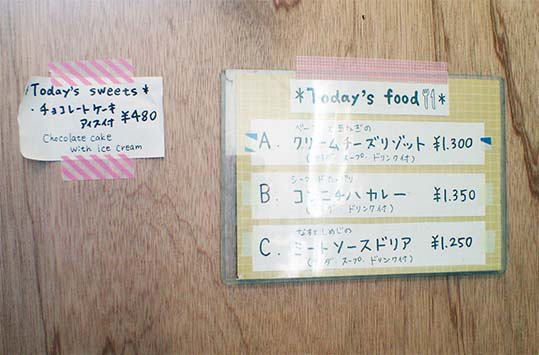 *Today's sweets*
・チョコレートケーキ
アイス付 ¥480
Chocolate cake
with ice cream
*Today's food*
A. クリームチーズリゾット ¥1.300
スープ・ドリンク付)
B. コンニチハカレー ¥1.350
ドリンク付)
なすとしめじの
C. ミートソースドリア ¥1.250
スープ・ドリンク付)